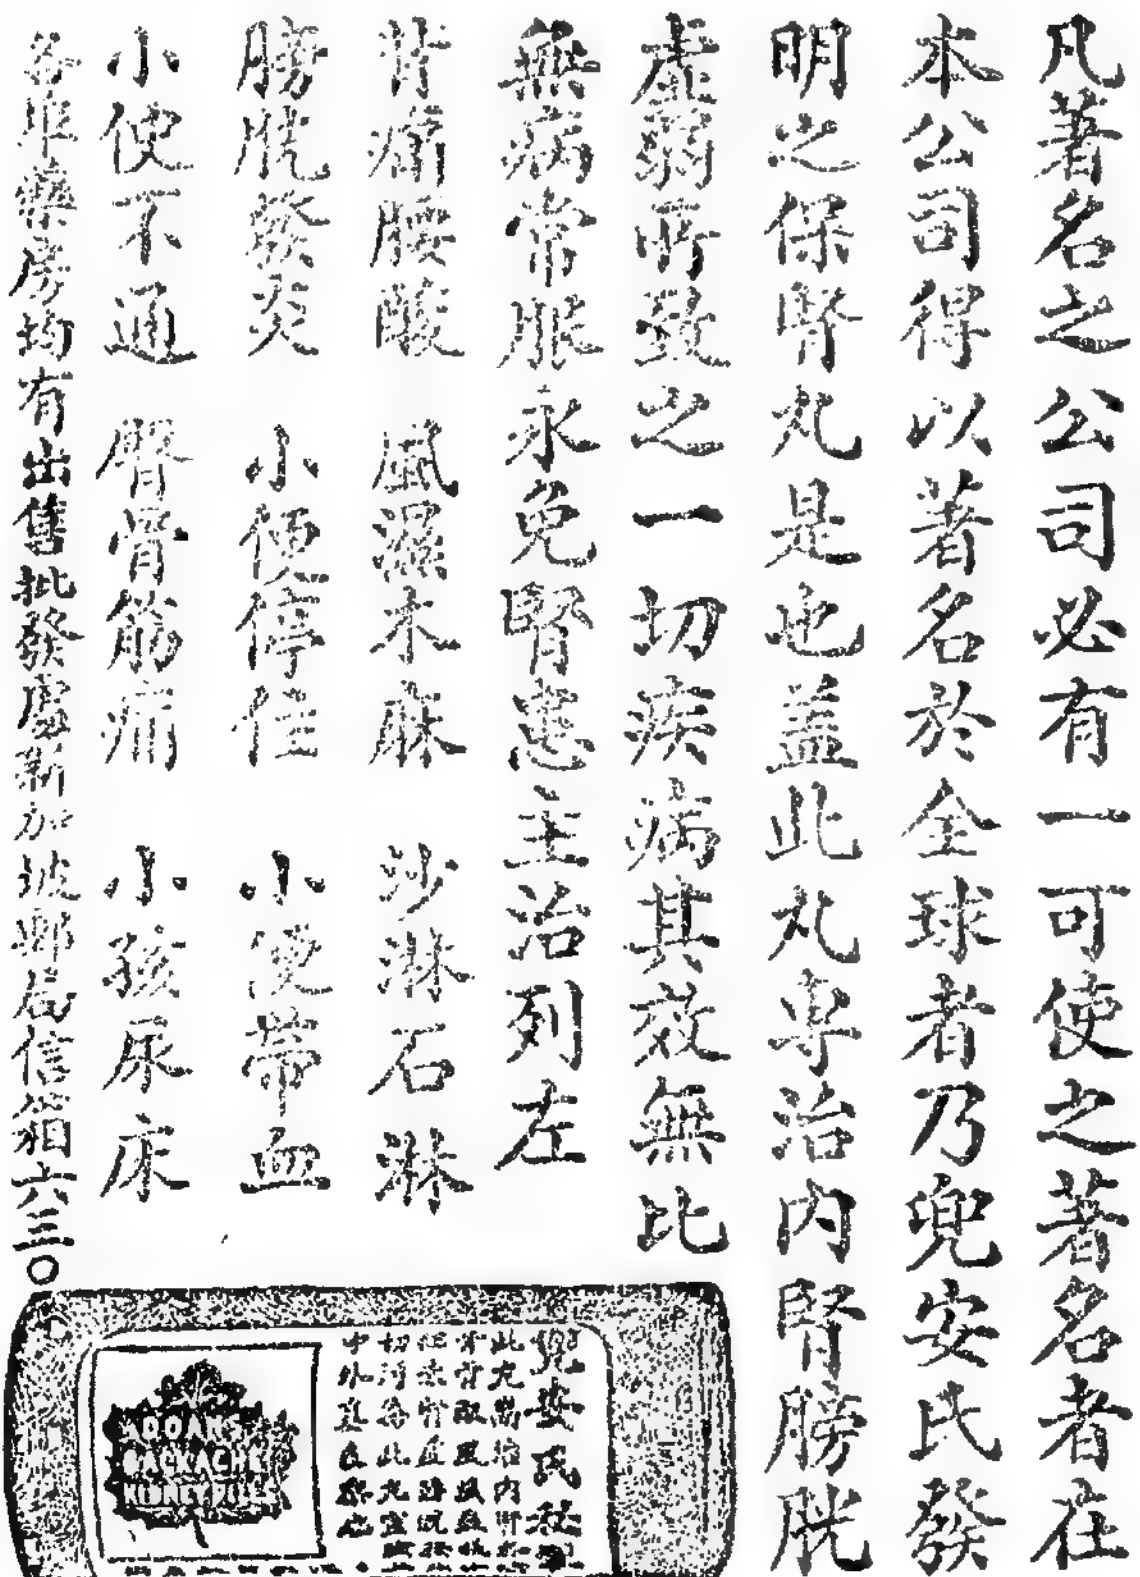 凡著名之公司必有一可使之著名者在
本公司得以著名於全球者乃兜安氏發
明之保腎丸是也蓋此丸專治內腎膀胱
虛弱所致之一切疾病其效無比
無病常服永免腎患主治列左
背痛腰酸 風濕木麻 沙淋石淋
膀胱發炎 小便停住 小便帶血
小便不通 腎骨筋痛 小孩尿床
各埠藥房均有出售批發處新加坡郵局信箱六三〇
兜安氏秘
此丸 治內腎
中外
BACKACHE
KIDNEY PILLS